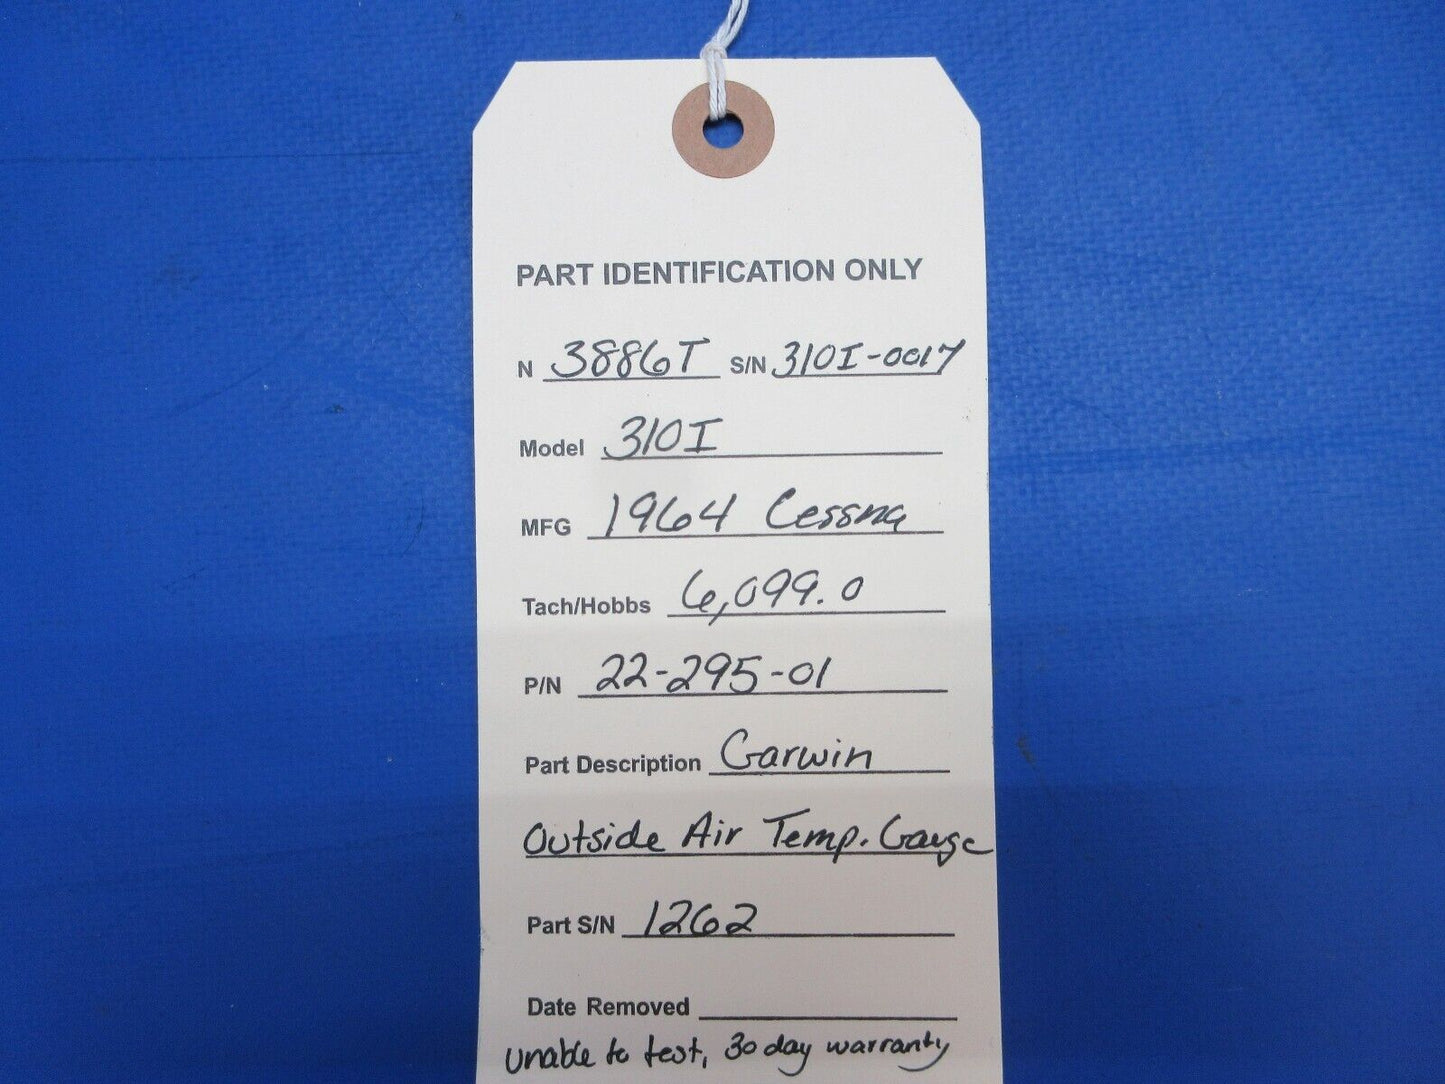 PART IDENTIFICATION ONLY
N 3886T S/N 310I-0017
Model 310I
MFG 1964 Cessna
Tach/Hobbs 6,099.0
P/N 22-295-01
Part Description Garwin
Outside Air Temp. Gauge
Part S/N 1262
Date Removed
unable to test, 30 day warranty